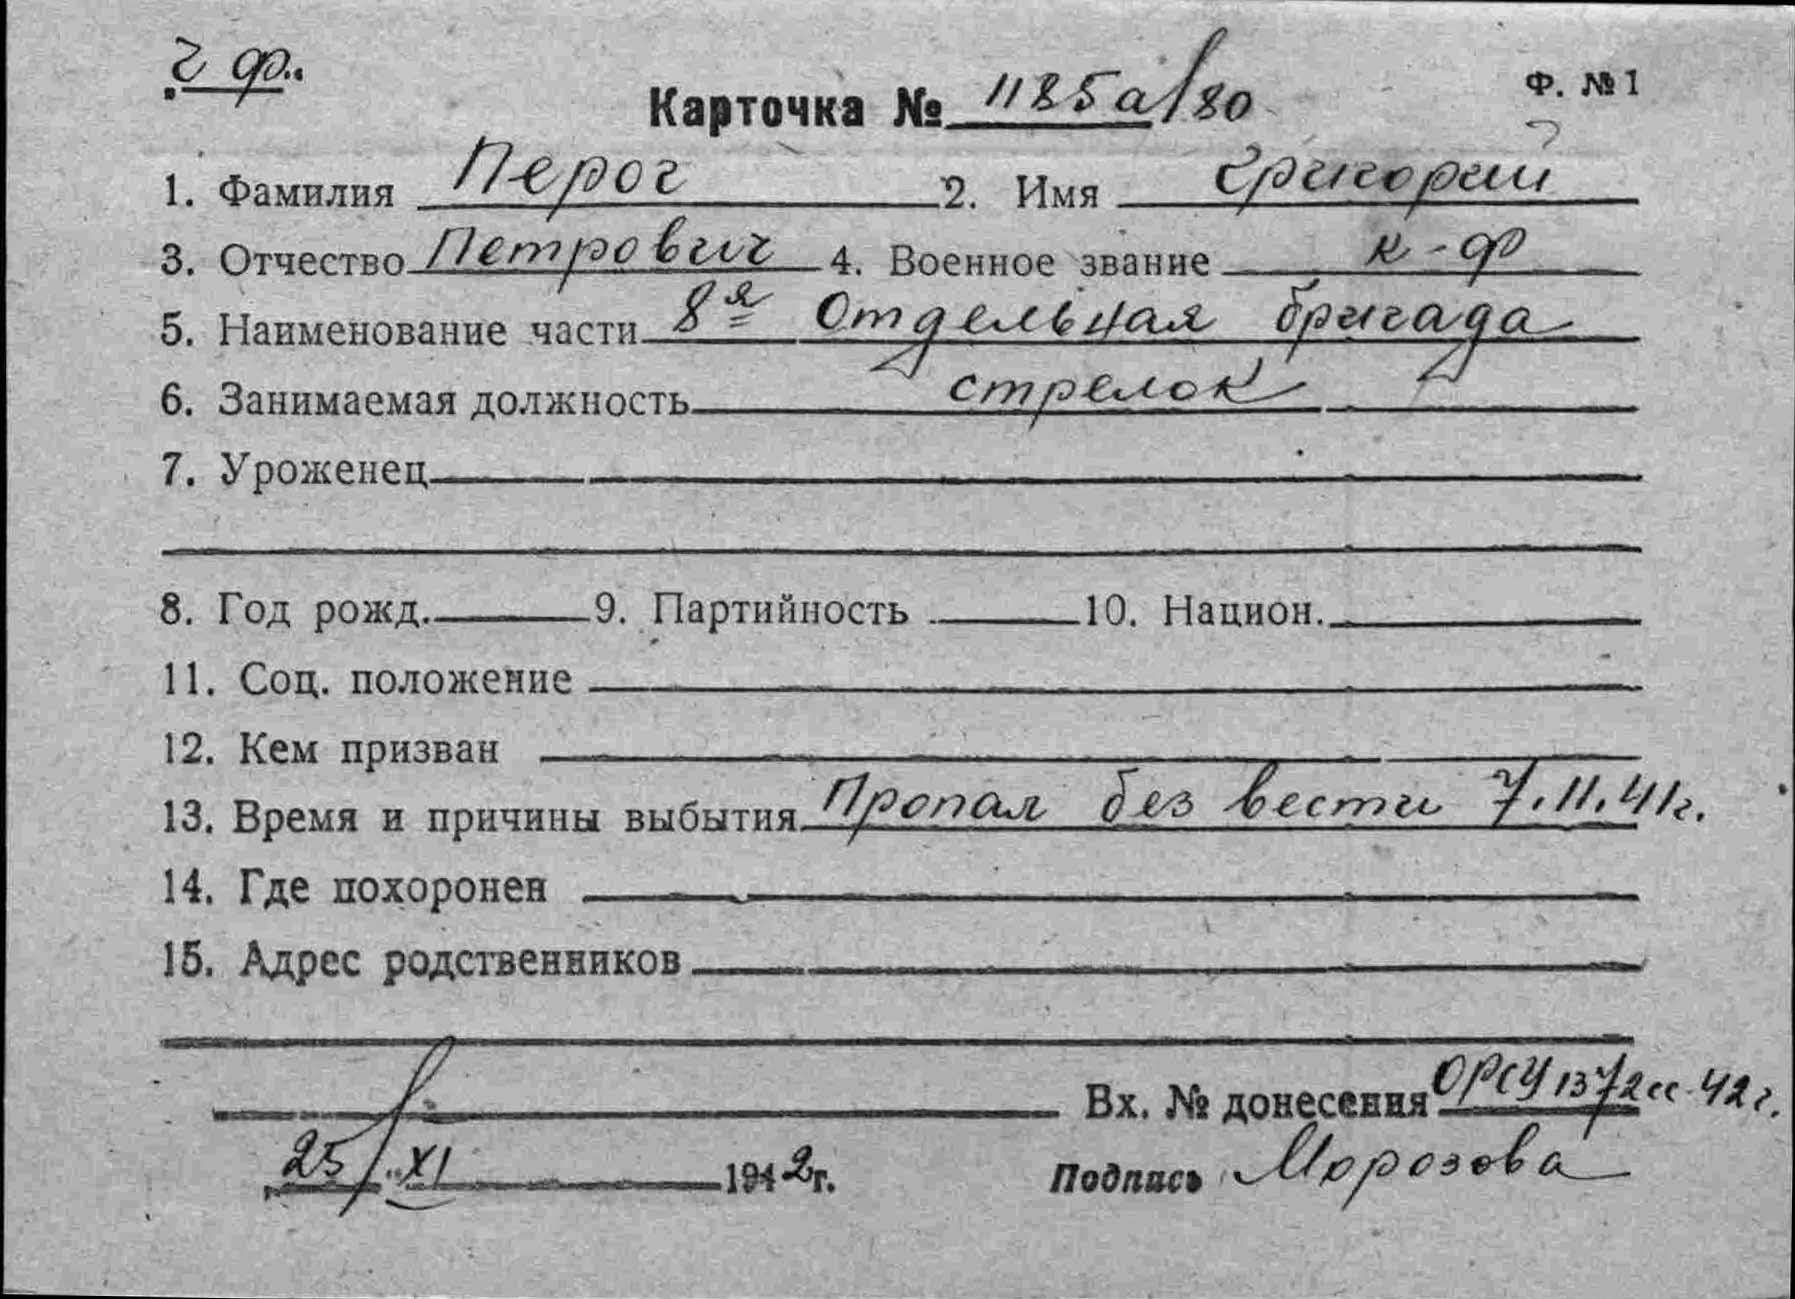 г ф.
Карточка № 1185а/80 Ф. № 1
1. Фамилия Перог 2. Имя Григорий
3. Отчество Петрович 4. Военное звание к-ф
5. Наименование части 8я Отдельная бригада
6. Занимаемая должность стрелок
7. Уроженец
8. Год рожд. 9. Партийность 10. Национ.
11. Соц. положение
12. Кем призван
13. Время и причины выбытия Пропал без вести 7.11.41г.
14. Где похоронен
15. Адрес родственников
Вх. № донесения ОРСУ 1372сс 42г.
25/XI 1942г. Подпись Морозова